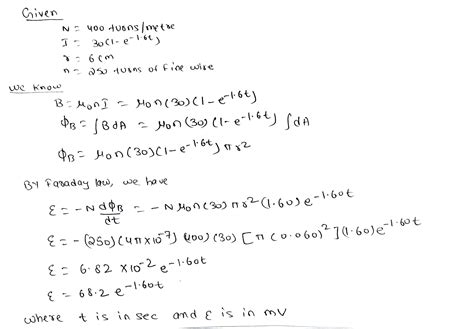 Given
N = 400 turns/metre
I = 30(1-e^-1.6t)
r = 6cm
n = 250 turns of fine wire
We know
B = μ0nI = μ0n(30)(1-e^-1.6t)
ΦB = ∫BdA = μ0n(30)(1-e^-1.6t)∫dA
ΦB = μ0n(30)(1-e^-1.6t)πr²
By Faraday law, we have
ε = -N dΦB/dt = -Nμ0n(30)πr²(1.60)e^-1.60t
ε = -(250)(4π×10^-7)(400)(30)[π(0.060)²](1.60)e^-1.60t
ε = 6.82 ×10^-2 e^-1.60t
ε = 68.2 e^-1.60t
where t is in sec and ε is in mV